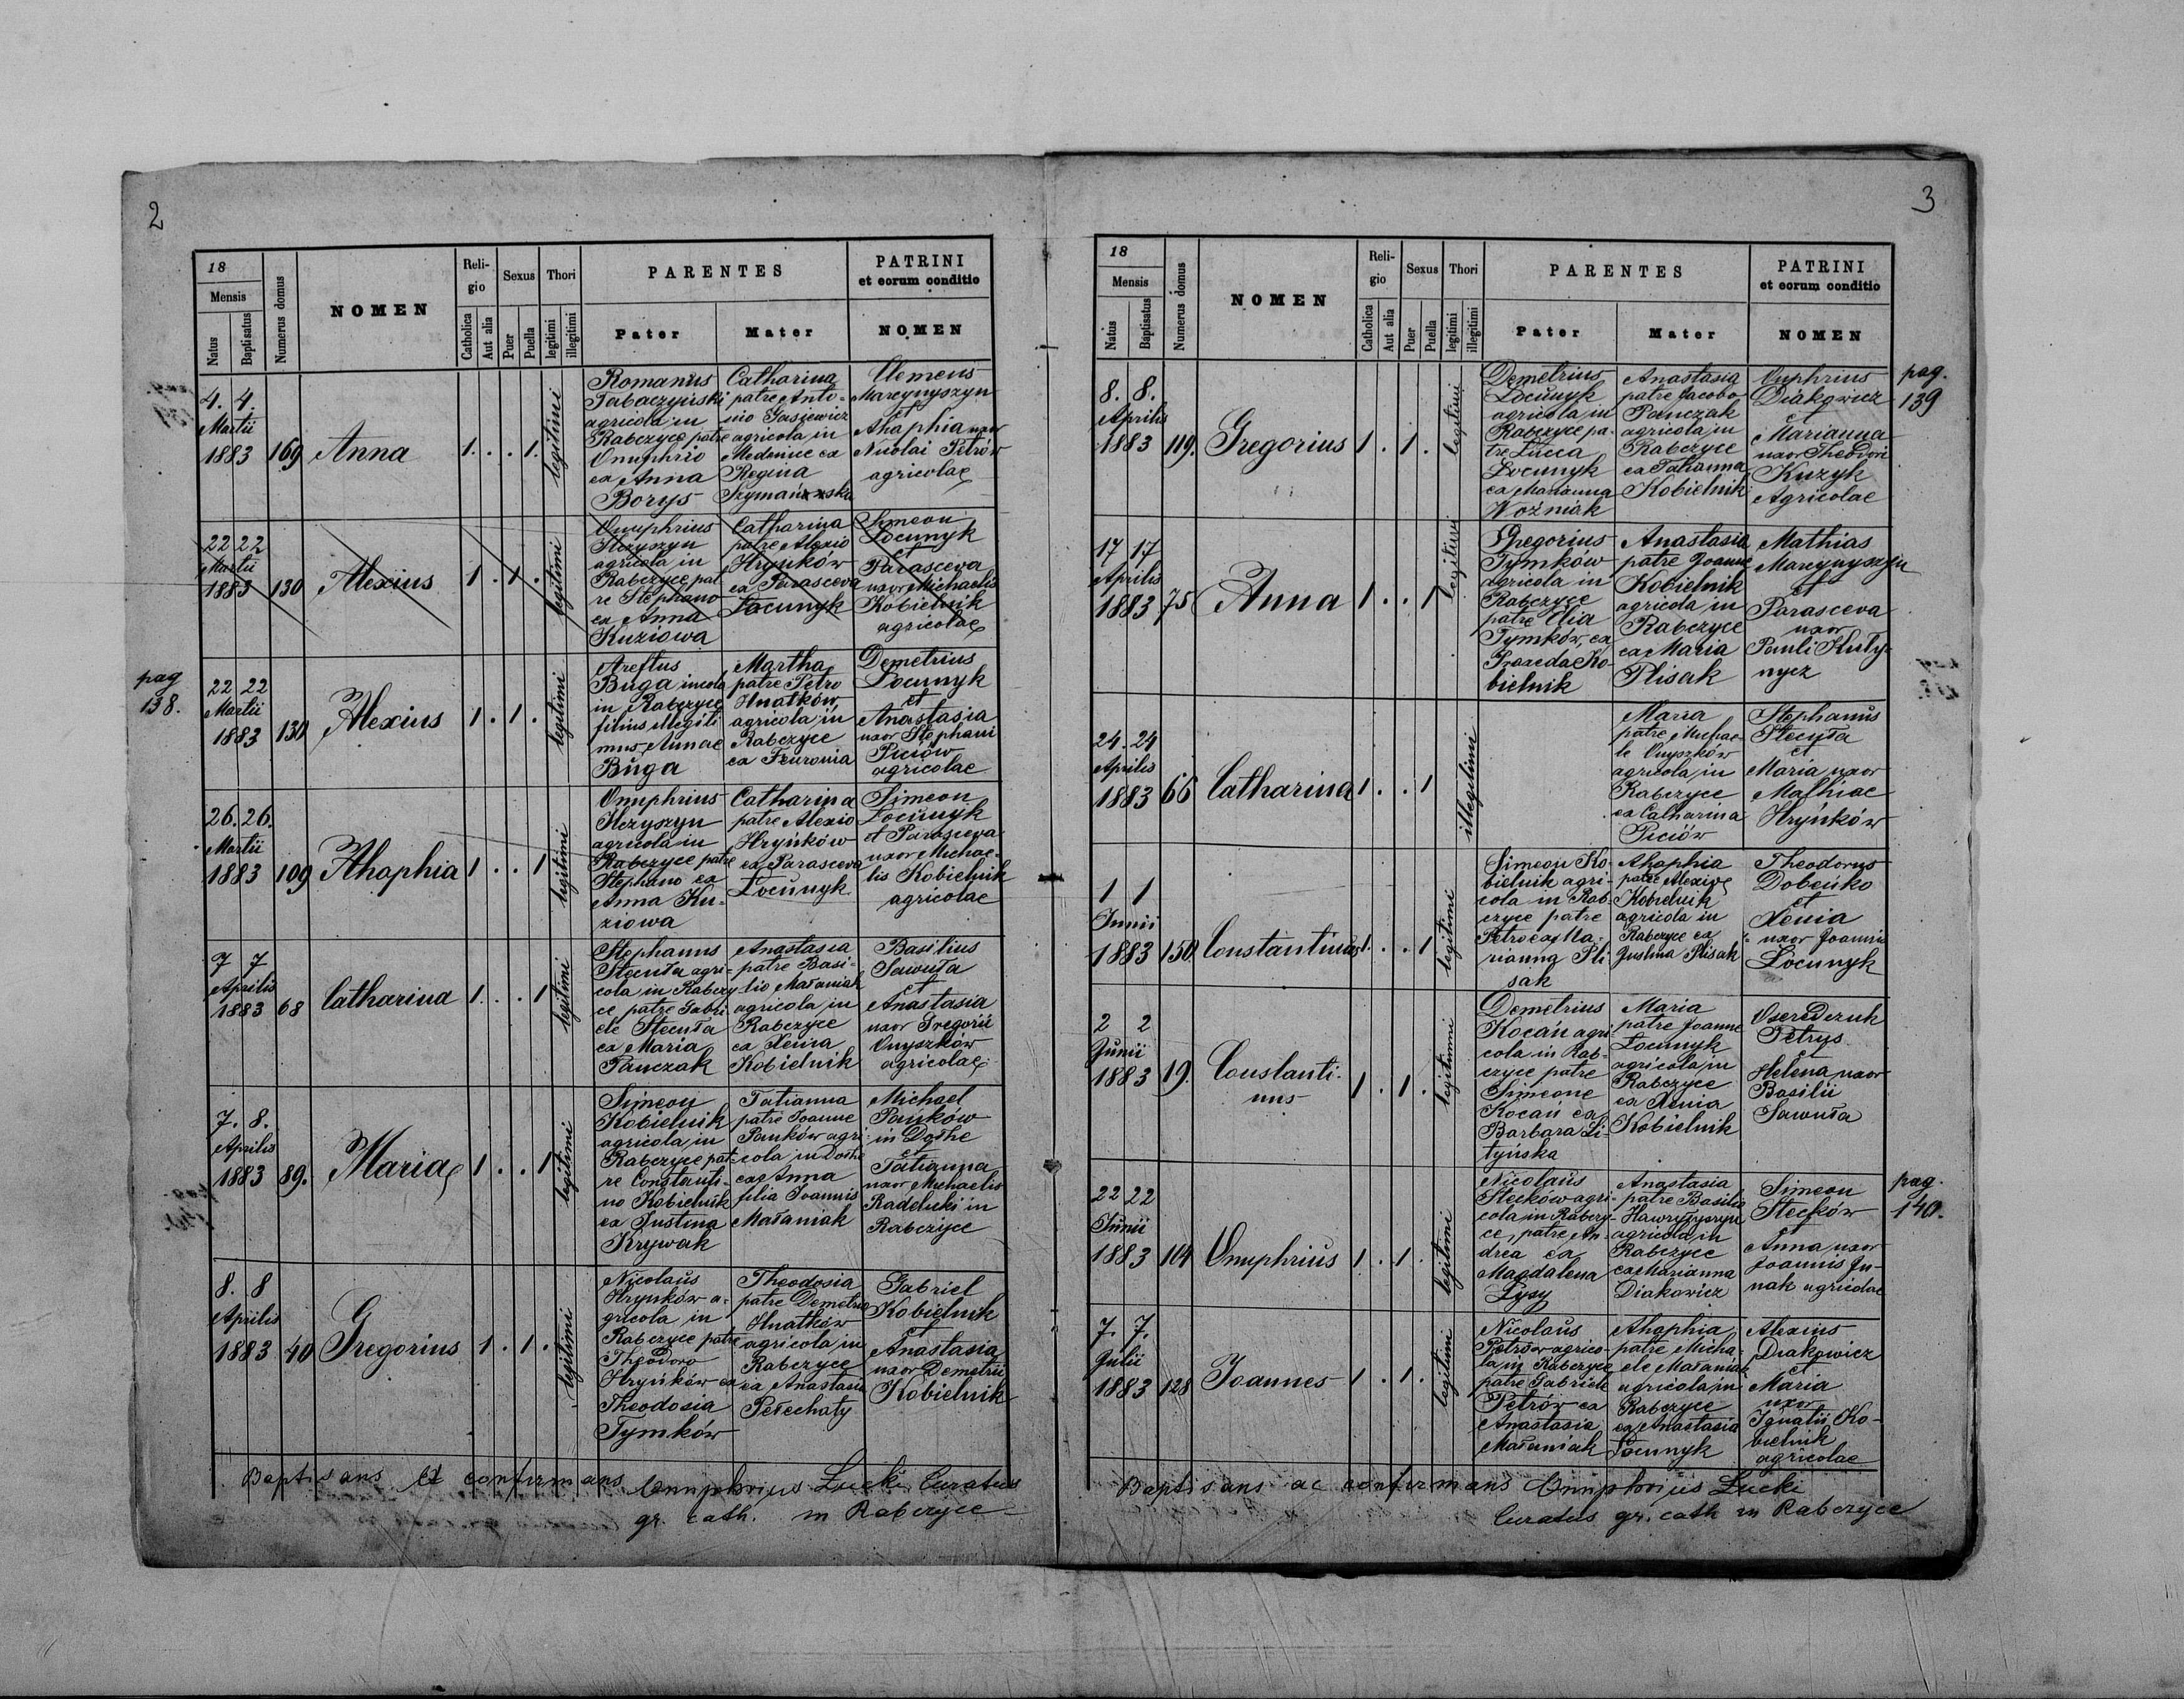 2
18
Mensis
Natus
Baptisatus
Numerus domus
NOMEN
Reli-
gio
Catholica
Aut alia
Sexus
Puer
Puella
Thori
legitimi
illegitimi
PARENTES
Pater
Mater
PATRINI
et eorum conditio
NOMEN
4. 4.
Martii
1883
169
Anna
1. . . 1.
legitimi
Romanus
Tabaczyński
agricola in
Rabczyce patre
Onuphrio
ea Anna
Borys
Catharina
patre Anto-
nio Gasiewicz
agricola in
Medenice ea
Regina
Szymańska
Clemens
Marcynyszyn
et
Ahaphia uxor
Nicolai Petrów
agricolae
22 22
Martii
1883
130
Alexius
1 . 1 .
legitimi
Onuphrius
Ilczyszyn
agricola in
Rabczyce pat
re Stephano
ea Anna
Kuziowa
Catharina
patre Alexio
Hryńków
ea Parasceva
Łocunyk
Simeon
Łocunyk
et
Parasceva
uxor Michaelis
Kobielnik
agricolae
pag
138.
22 22
Martii
1883
130
Alexius
1 . 1 .
legitimi
Areftus
Buga incola
in Rabczyce
filius illegiti
mus Annae
Buga
Martha
patre Petro
Hnatków
agricola in
Rabczyce
ea Feuronia
Demetrius
Łocunyk
et
Anastasia
uxor Stephani
Piciów
agricolae
26. 26.
Martii
1883
109
Ahaphia
1 . . 1
legitimi
Onuphrius
Ilczyszyn
agricola in
Rabczyce patre
Stephano ea
Anna Ku-
ziowa
Catharina
patre Alexio
Hryńków
ea Parasceva
Łocunyk
Simeon
Łocunyk
et Parasceva
uxor Michae-
lis Kobielnik
agricolae
7 7
Aprilis
1883
68
Catharina
1. . . 1
legitimi
Stephanus
Stecuła agri-
cola in Rabczy
ce patre Gabri
ele Stecuła
ea Maria
Panczak
Anastasia
patre Basi-
lio Małaniak
agricola in
Rabczyce
ea Xenia
Kobielnik
Basilius
Sawuła
et
Anastasia
uxor Gregorii
Onyszków
agricolae
7. 8.
Aprilis
1883
89.
Maria
1 . . 1
legitimi
Simeon
Kobielnik
agricola in
Rabczyce pat-
re Constanti-
no Kobielnik
ea Justina
Krywak
Tatianna
patre Joanne
Pańków agri
cola in Dołhe
ea Anna
filia Joannis
Małaniak
Michael
Pańków
in Dołhe
et
Tatianna
uxor Michaelis
Radelicki in
Rabczyce
8. 8
Aprilis
1883
40
Gregorius
1 . 1 .
legitimi
Nicolaus
Hryńków a-
gricola in
Rabczyce patre
Theodoro
Hryńków ea
Theodosia
Tymków
Theodosia
patre Demetrio
Hnatków
agricola in
Rabczyce
ea Anastasia
Pełechaty
Gabriel
Kobielnik
et
Anastasia
uxor Demetrii
Kobielnik
Baptisans et confirmans Onuphrius Lucki Curatus
gr. cath. in Rabczyce
3
18
Mensis
Natus
Baptisatus
Numerus domus
NOMEN
Reli-
gio
Catholica
Aut alia
Sexus
Puer
Puella
Thori
legitimi
illegitimi
PARENTES
Pater
Mater
PATRINI
et eorum conditio
NOMEN
8. 8.
Aprilis
1883
119.
Gregorius
1 . 1 .
legitimi
Demetrius
Łocunyk
agricola in
Rabczyce pa-
tre Lucca
Łocunyk
ea Marianna
Woźniak
Anastasia
patre Jacobo
Panczak
agricola in
Rabczyce
ea Tatianna
Kobielnik
Onphrius
Diakowicz
et
Marianna
uxor Theodori
Kuzyk
Agricolae
pag.
139
17 17
Aprilis
1883
75
Anna
1 . . 1
legitimi
Gregorius
Tymków
agricola in
Rabczyce
patre Elia
Tymków, ea
Praxeda Ko-
bielnik
Anastasia
patre Joanne
Kobielnik
agricola in
Rabczyce
ea Maria
Plisak
Mathias
Marcynyszyn
et
Parasceva
uxor
Pauli Kuty-
nycz
24. 24
Aprilis
1883
66
Catharina
1 . . 1
illegitimi
Maria
patre Michae-
le Onyszków
agricola in
Rabczyce
ea Catharina
Piciów
Stephanus
Stecyła
et
Maria uxor
Mathiae
Hryńków
1 1
Junii
1883
150
Constantinus
1. . . 1
legitimi
Simeon Ko-
bielnik agri-
cola in Rab-
czyce patre
Petro ea Ma-
rianna Pli
sak
Ahaphia
patre Alexio
Kobielnik
agricola in
Rabczyce ea
Justina Plisak
Theodorus
Dobeńko
et
Xenia
uxor Joannis
Łocunyk
2 2
Junii
1883
19.
Constanti-
nus
1 . 1 .
legitimi
Demetrius
Kocań agri
cola in Rab-
czyce patre
Simeone
Kocań ea
Barbara Li-
tyńska
Maria
patre Joanne
Łocunyk
agricola in
Rabczyce
ea Xenia
Kobielnik
Oseredczuk
Petrys
et
Helena uxor
Basilii
Sawuła
22 22
Junii
1883
104
Onuphrius
1 . 1 .
legitimi
Nicolaus
Stecków agri-
cola in Rabczy-
ce, patre An-
drea ea
Magdalena
Łysy
Anastasia
patre Basilio
Hawryłyszyn
agricola in
Rabczyce
ea Marianna
Diakowicz
Simeon
Stecków
et
Anna uxor
Joannis Ju-
nak agricolae
pag.
140.
7. 7.
Julii
1883
128
Joannes
1 . 1 .
legitimi
Nicolaus
Petrów agrico-
la in Rabczyce
patre Gabriele
Petrów ea
Anastasia
Małaniak
Ahaphia
patre Micha-
ele Małaniak
agricola in
Rabczyce
ea Anastasia
Łocunyk
Alexius
Diakowicz
et
Maria
uxor
Ignatii Ko-
bielnik
agricolae
Baptisans ac confirmans Onuphrius Lucki
Curatus gr. cath in Rabczyce